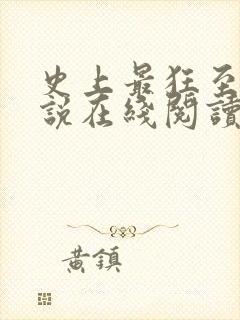 史上最狂至
說在綫閱讀
黃鎮